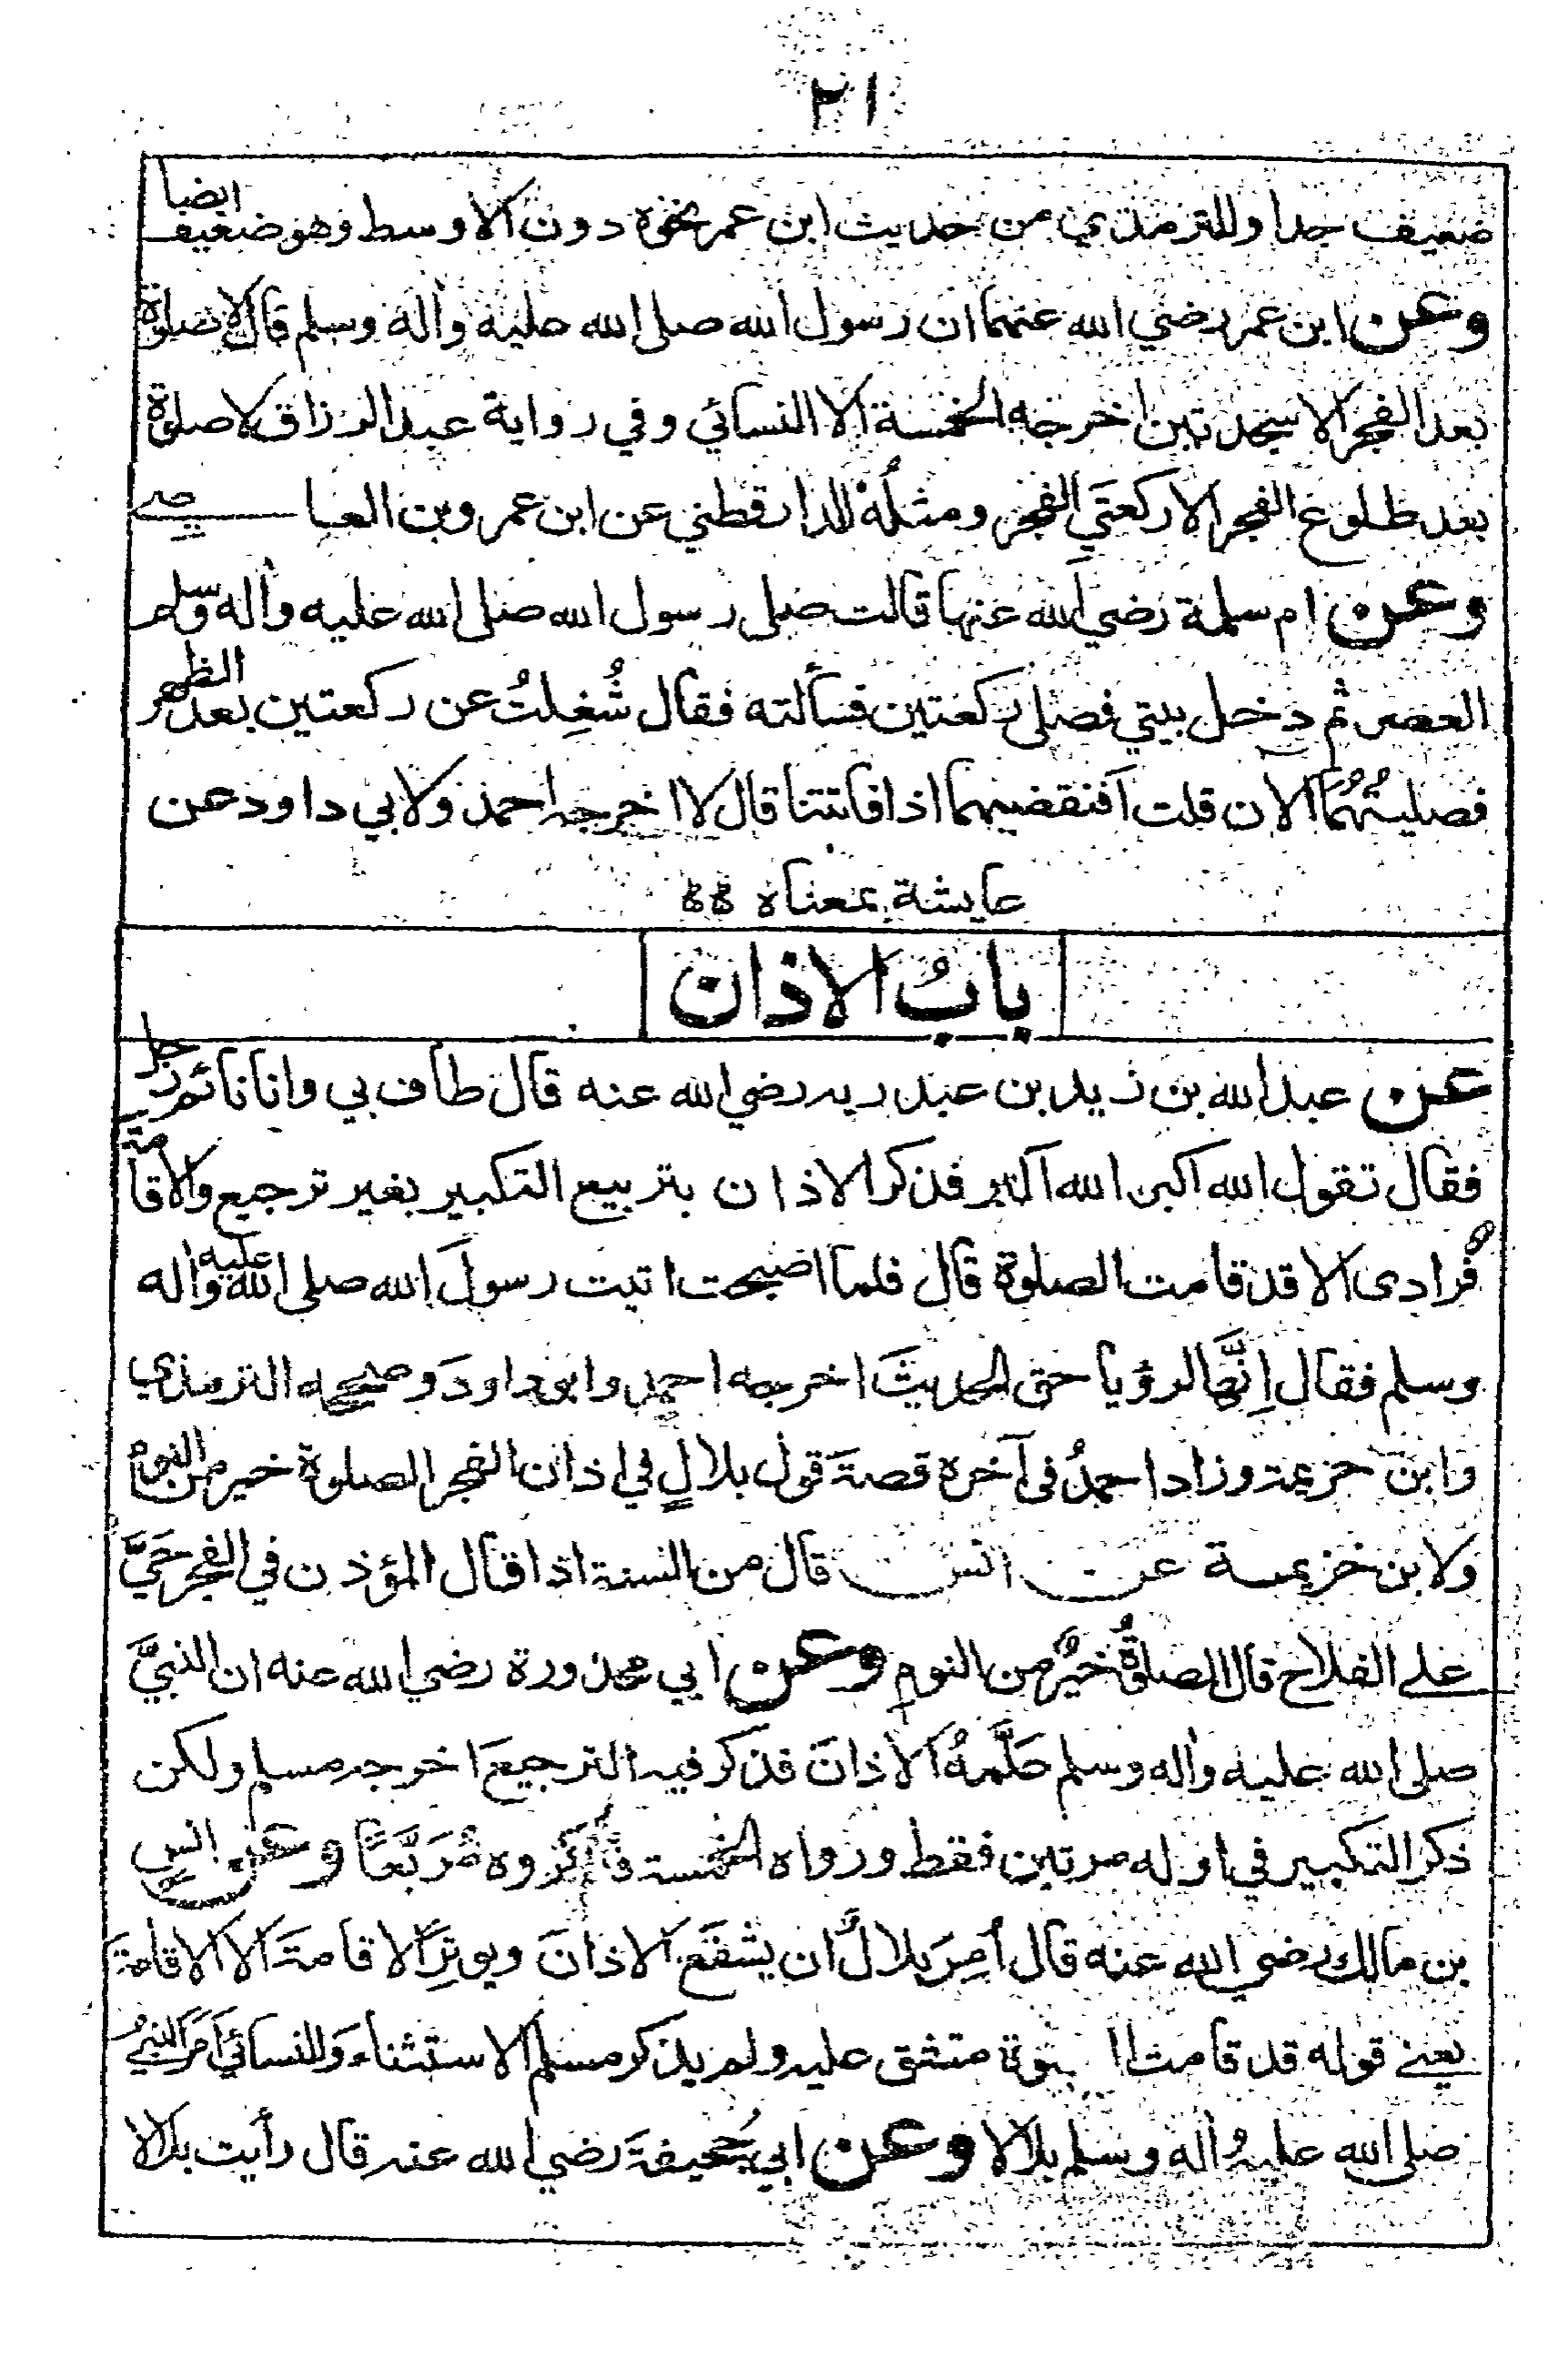 ٢١
ضعيف جدا وللترمذي من حديث ابن عمر نحوه دون الاوسط وهو ضعيف ايضا
وعن ابن عمر رضي الله عنهما ان رسول الله صلى الله عليه وأله وسلم قال لا صلوة
بعد الفجر الا سجدتين اخرجه الخمسة الا النسائي وفي رواية عبد الرزاق لا صلوة
بعد طلوع الفجر الا ركعتَي الفجر ومثلُهُ للدارقطني عن ابن عمرو بن العاص
وعن ام سلمة رضي الله عنها قالت صلى رسول الله صلى الله عليه وأله وسلم
العصر ثم دخل بيتي فصلى ركعتين فسألته فقال شُغِلتُ عن ركعتين بعد الظهر
فصليتُهُمَا الان قلت أفنقضيهما اذا فاتتنا قال لا اخرجه احمد ولابي داود عن
عايشة بمعناه
بابُ الاذان
عن عبد الله بن زيد بن عبد ربه رضي الله عنه قال طاف بي وانا نائم رجل
فقال تقول الله اكبر الله اكبر فذكر الاذان بتربيع التكبير بغير ترجيع والاقامةَ
فُرادى الا قد قامت الصلوة قال فلما اصبحت اتيت رسولَ الله صلى الله عليه وأله
وسلم فقال اِنَّهَا لرؤيا حق الحديثَ اخرجه احمد وابو داودَ وصححه الترمذي
وابن خزيمة وزاد احمدُ فى آخره قصةَ قول بلالٍ في اذان الفجر الصلوة خير من النوم
ولابن خزيمة عن انس قال من السنة اذا قال المؤذن في الفجر حَيَّ
على الفلاح قال الصلوةُ خيرٌ من النوم وعن ابي محذورة رضي الله عنه ان النبيَّ
صلى الله عليه وأله وسلم عَلَّمَهُ الاذانَ فذكر فيه الترجيعَ اخرجه مسلم ولكن
ذكر التكبير في اوله مرتين فقط ورواه الخمسة فذكروه مُرَبَّعًا وعن انسِ
بن مالك رضي الله عنه قال اُمِرَ بلالٌ ان يشفَعَ الاذانَ ويوتِرَ الاقامةَ الا الاقامةَ
يعني قوله قد قامت متفق عليه ولم يذكر مسلم الاستثناء وَللنسائي اَمَرَ النبيُ
صلى الله عليه وأله وسلم بلالا وعن ابي جُحَيفةَ رضي الله عنه قال رأيت بلالا